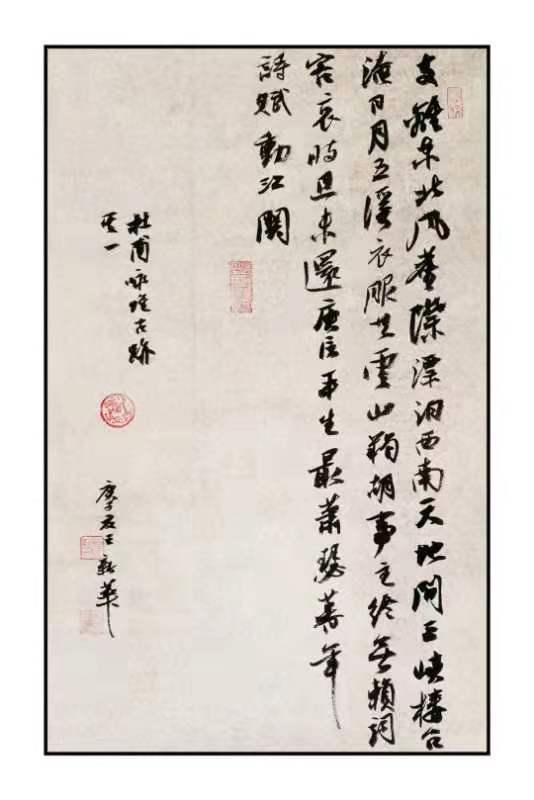 支離東北風塵際漂泊西南天地間三峽樓台
淹日月五溪衣服共雲山羯胡事主終無賴詞
客哀時且未還庾信平生最蕭瑟暮年
詩賦動江關
杜甫詠懷古跡
其一
庚子王新華